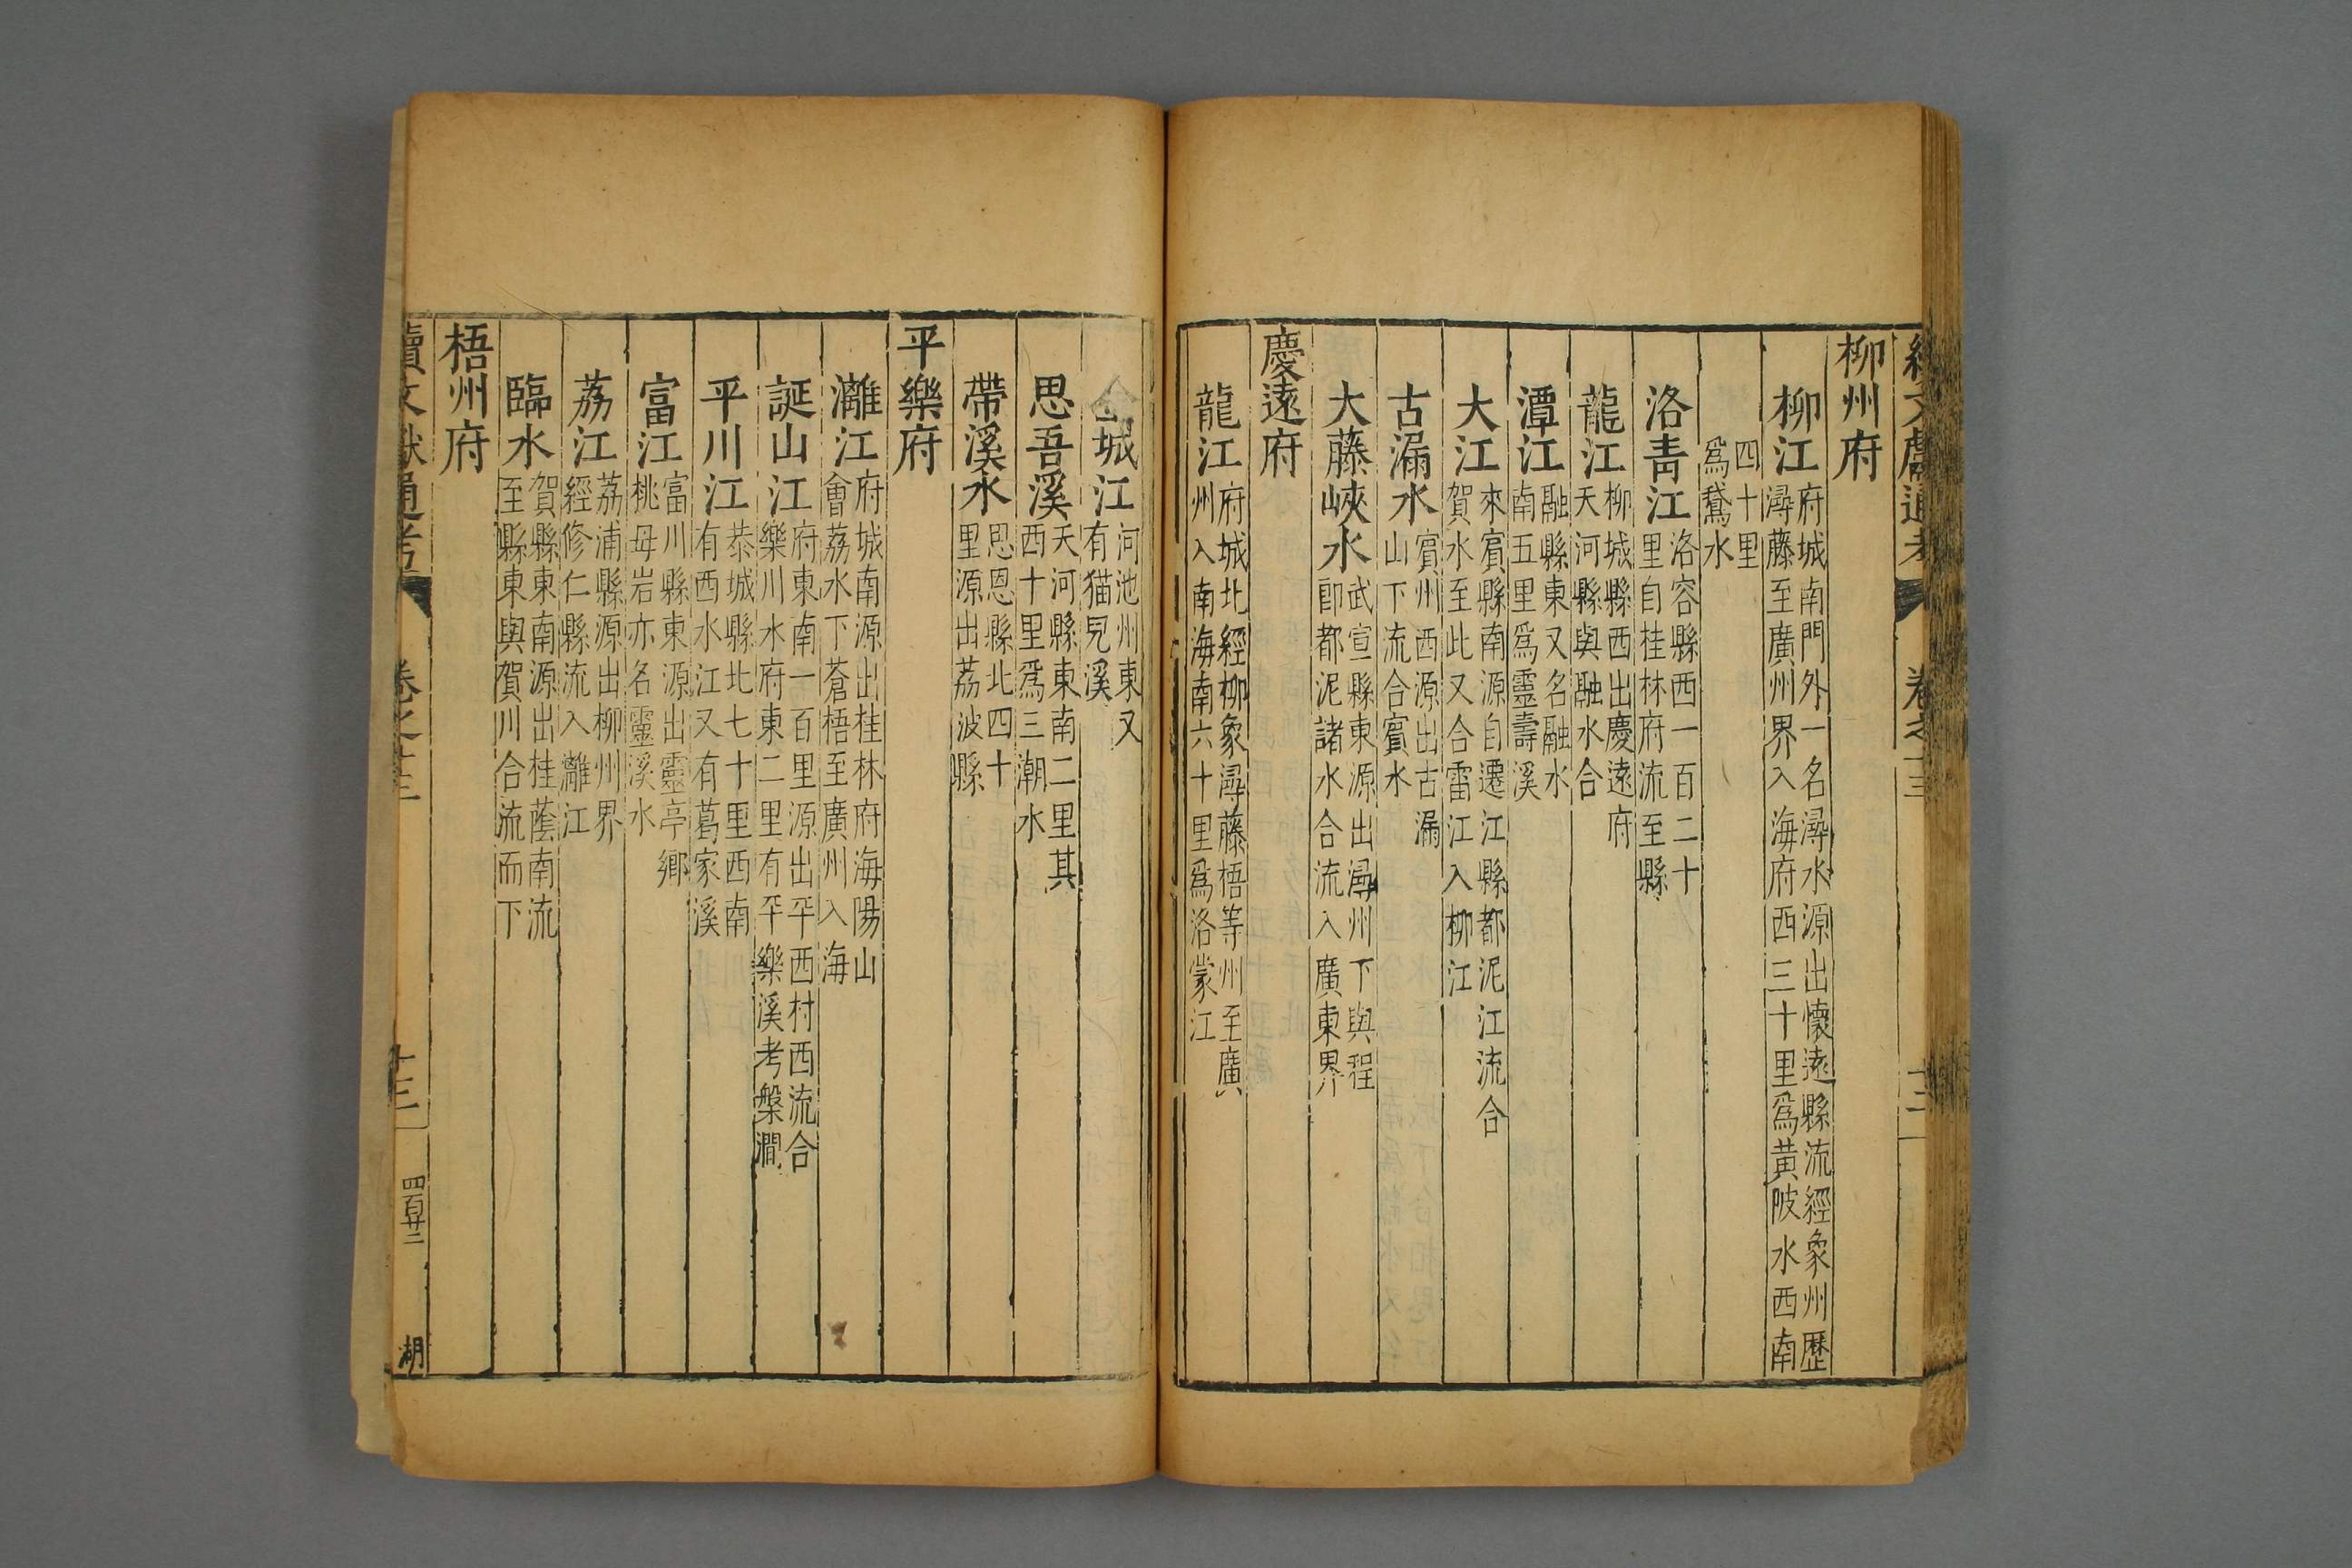 柳州府
柳江府城南門外一名潯水源出懷遠縣流經象州歷
潯藤至廣州界入海府西三十里爲黃陂水西南
四十里
爲鵞水
洛青江洛容縣西一百二十
里自桂林府流至縣
龍江柳城縣西出慶遠府
天河縣與融水合
潭江融縣東又名融水
南五里爲靈壽溪
大江來賓縣南源自遷江縣都泥江流合
賀水至此又合雷江入柳江
古漏水賓州西源出古漏
山下流合賓水
大藤峽水武宣縣東源出潯州下與程
即都泥諸水合流入廣東界
慶遠府
龍江府城北經柳象潯藤梧等州至廣
州入南海南六十里爲洛蒙江
金城江河池州東又
有猫兒溪
思吾溪天河縣東南二里其
西十里爲三潮水
帶溪水思恩縣北四十
里源出荔波縣
平樂府
灕江府城南源出桂林府海陽山
會荔水下蒼梧至廣州入海
誕山江府東南一百里源出平西村西流合
樂川水府東二里有平樂溪考槃澗
平川江恭城縣北七十里西南
有西水江又有葛家溪
富江富川縣東源出靈亭鄉
桃母岩亦名靈溪水
荔江荔浦縣源出柳州界
經修仁縣流入灕江
臨水賀縣東南源出桂䕃南流
至縣東與賀川合流而下
梧州府
續文獻通考
卷之十三
十三
四百廿二
湖